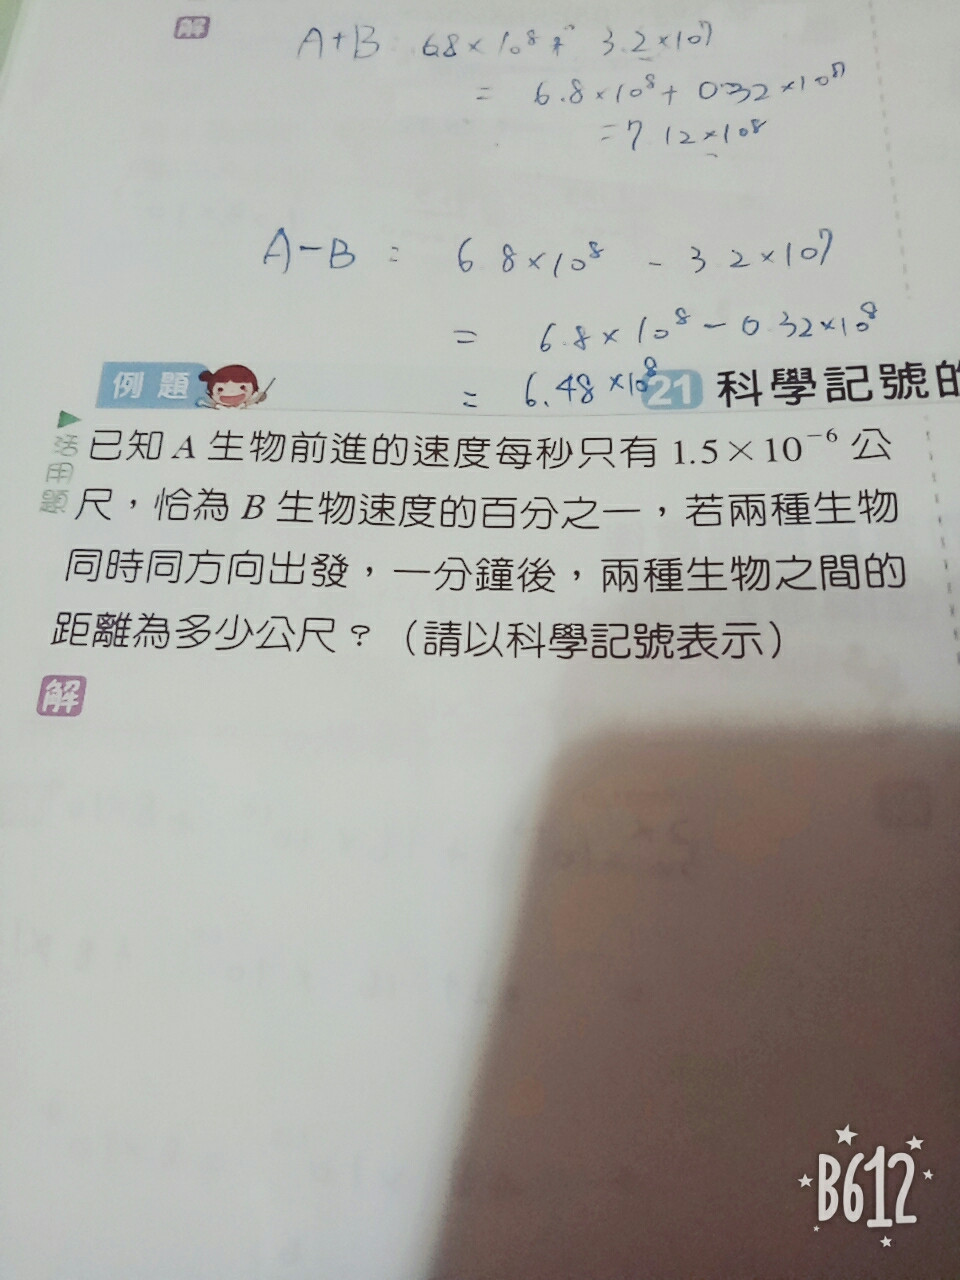 解
A+B 6.8×10⁸ + 3.2×10⁷
= 6.8×10⁸+ 0.32×10⁸
=7.12×10⁸
A-B = 6.8×10⁸ - 3.2×10⁷
= 6.8×10⁸-0.32×10⁸
= 6.48×10⁸
例題 21 科學記號的
活用題
已知 A 生物前進的速度每秒只有 1.5×10⁻⁶ 公
尺,恰為 B 生物速度的百分之一,若兩種生物
同時同方向出發,一分鐘後,兩種生物之間的
距離為多少公尺?(請以科學記號表示)
解
B612